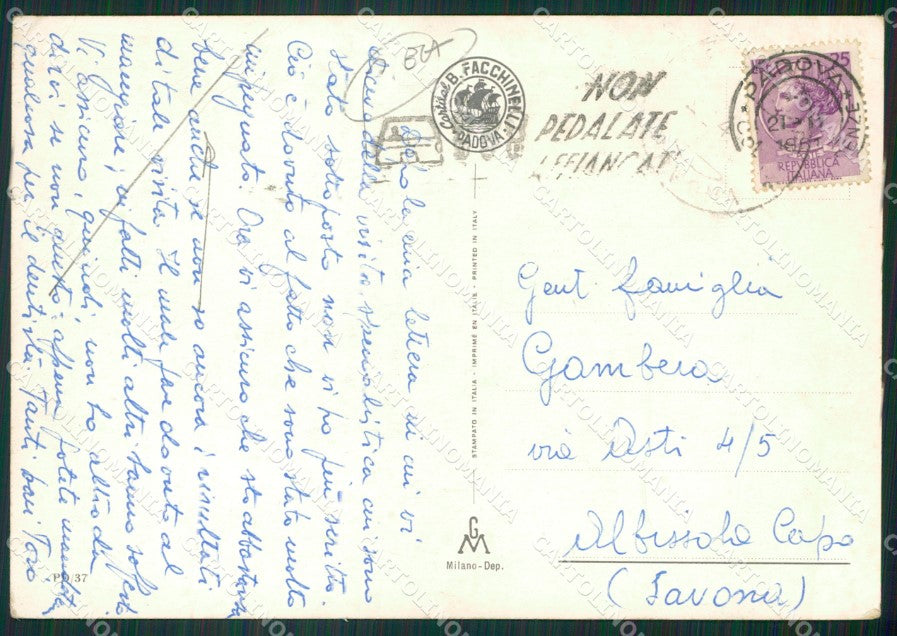 Dopo la mia lettera in cui vi
dicevo della visita specialistica cui sono
stato sottoposto non vi ho più scritto.
Ciò è dovuto al fatto che sono stato molto
impegnato. Ora vi assicuro che sto abbastanza
bene anche se non so ancora i risultati
di tale visita. Il mal fare dovuto al
mangiare; infatti molti altri hanno sofferto
Vi assicuro, quindi, non ho altro da
dirvi se non questo: appena potete mandate
qualcosa per il dentista Tanti baci
ELA
Cartoleria B. FACCHINELLI
PADOVA
NON
PEDALATE
AFFIANCATI
PADOVA
21
25
REPVBBLICA
ITALIANA
STAMPATO IN ITALIA - IMPRIMÉ EN ITALIE - PRINTED IN ITALY
Gent. famiglia
Gambera
via Asti 4/5
Albissola Capo
(Savona)
GM
Milano-Dep.
PD/37
CARTOLINOMANIA